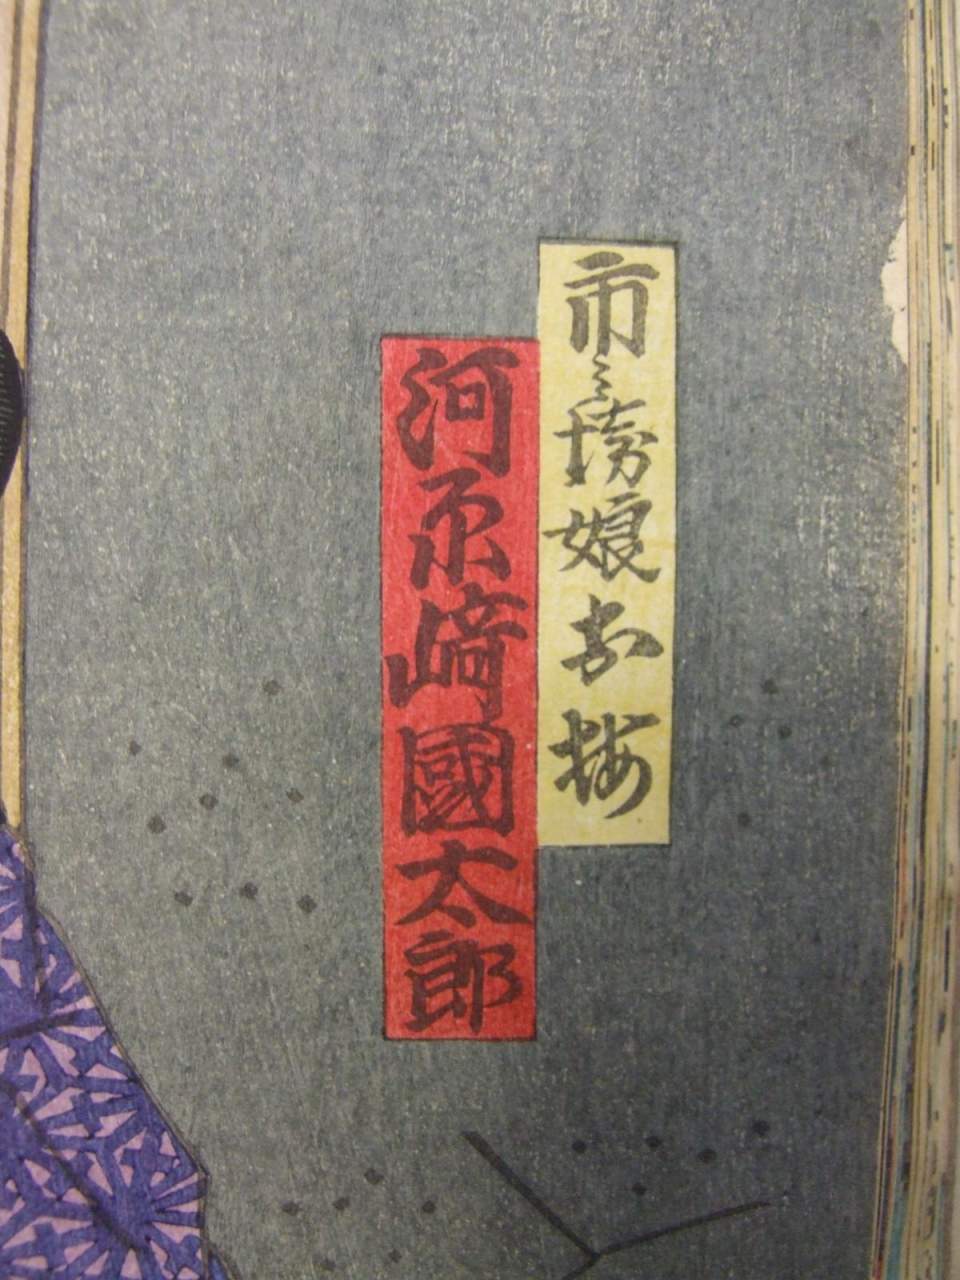 市娘お梅
河原崎國太郎